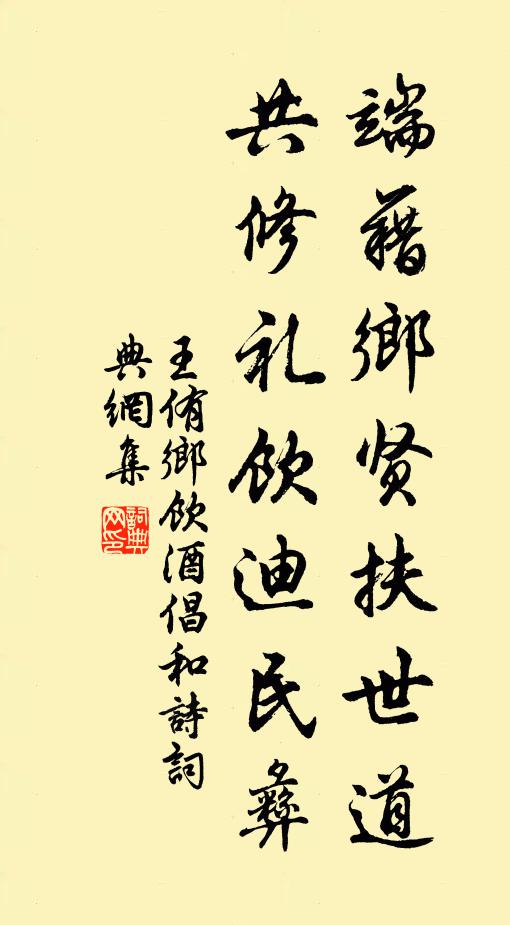 端藉鄉贤扶世道
共修礼飲迪民彝
王侑鄉飲酒倡和詩詞
典網集
詞典網印